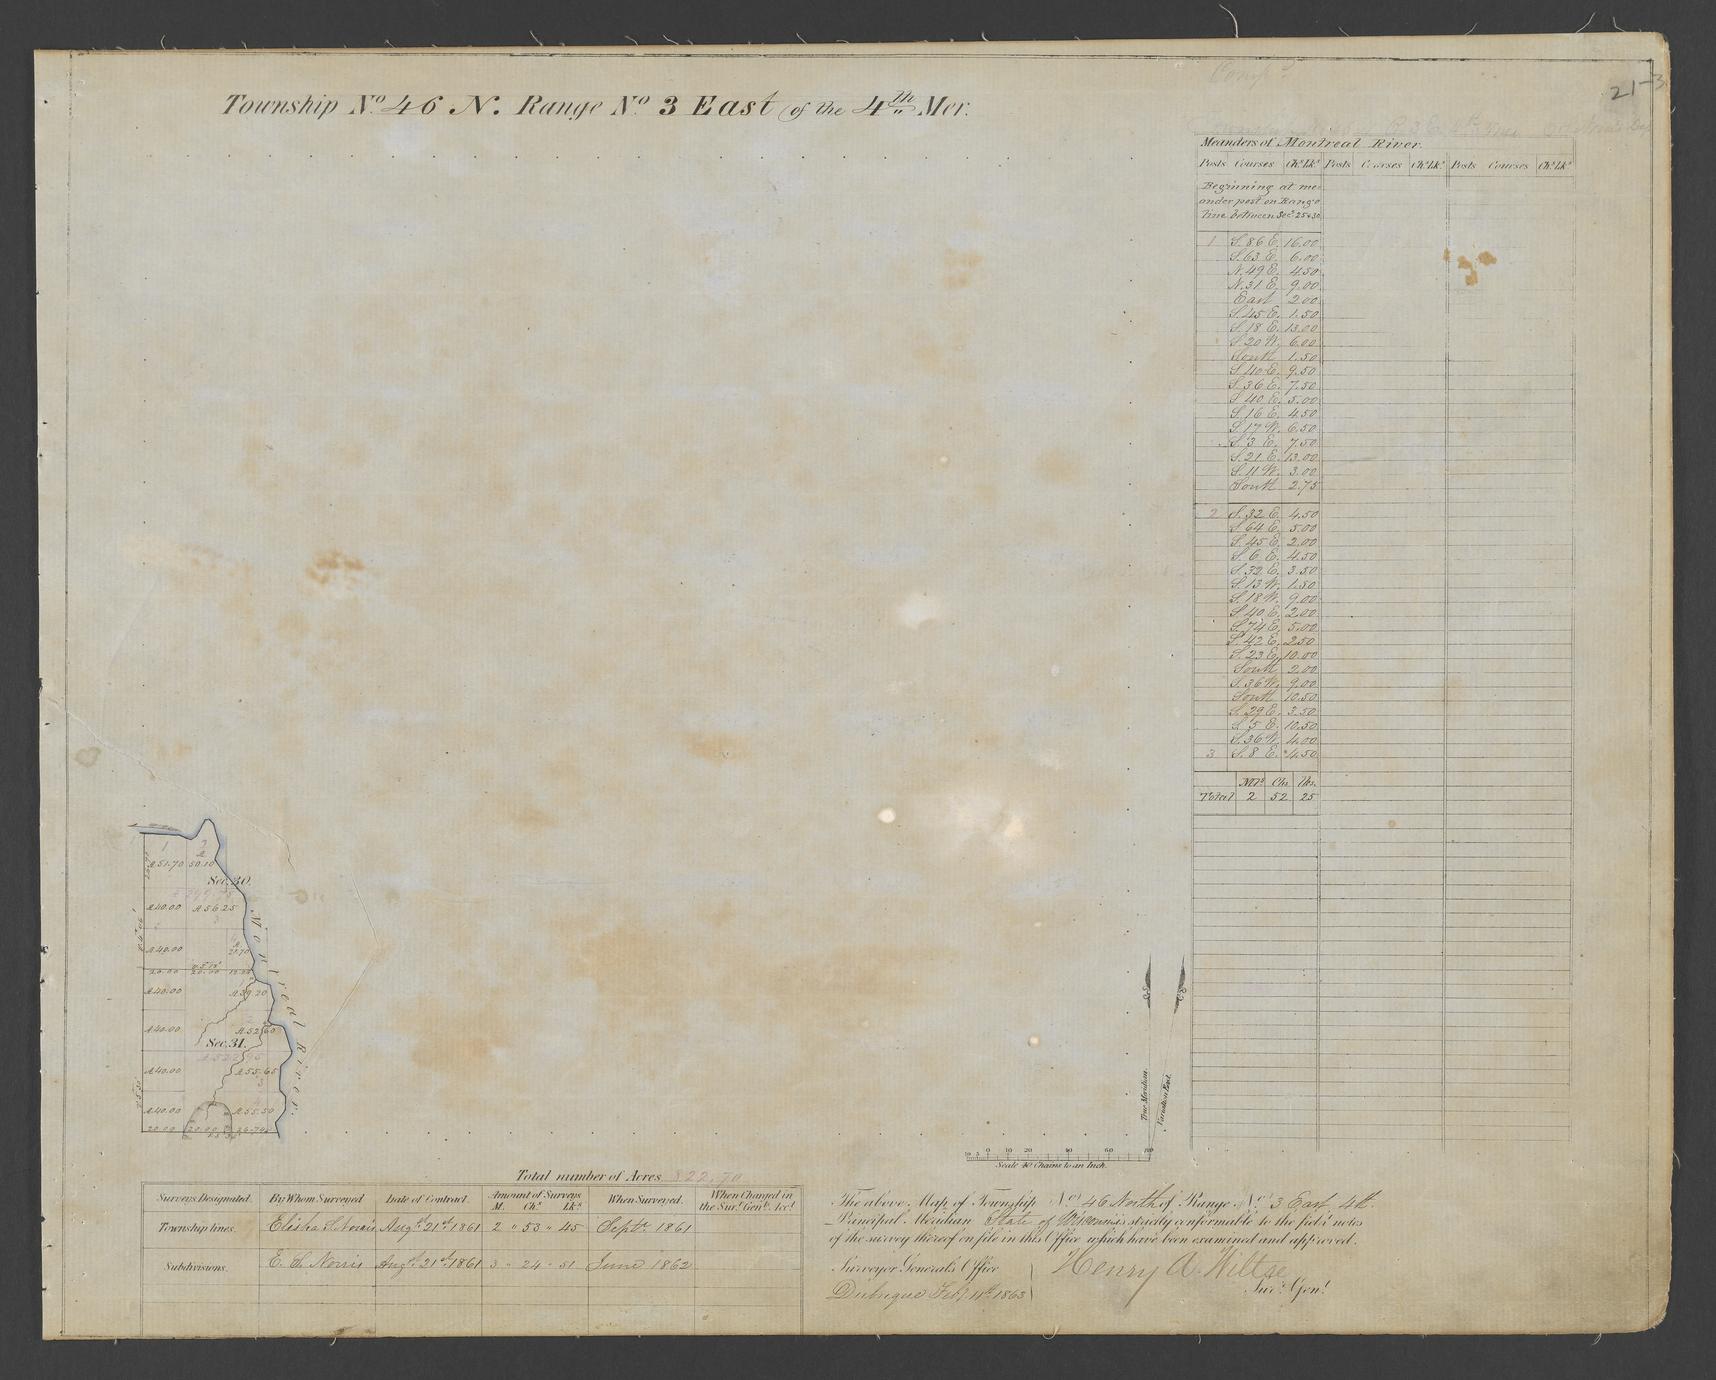 21-3
Township Nº 46 N. Range Nº 3 East of the 4th Mer.
Meanders of Montreal River.
Posts Courses Chs Lks Posts Courses Chs Lks Posts Courses Chs Lks
Beginning at me-
ander post on Range
line between Secs 25 & 30
1 S. 86 E. 16.00
S. 63 E. 6.00
N. 49 E. 4.50
N. 31 E. 9.00
East 2.00
S. 45 E. 1.50
S. 18 E. 13.00
S. 20 W. 6.00
South 1.50
S. 40 E. 9.50
S. 36 E. 7.50
S. 40 E. 5.00
S. 16 E. 4.50
S. 17 W. 6.50
S. 3 E. 7.50
S. 21 E. 13.00
S. 11 W. 3.00
South 2.75
2 S. 32 E. 4.50
S. 64 E. 5.00
S. 45 E. 2.00
S. 6 E. 4.50
S. 32 E. 3.50
S. 13 W. 1.50
S. 18 W. 9.00
S. 40 E. 2.00
S. 74 E. 5.00
S. 42 E. 2.50
S. 23 E. 10.00
South 2.00
S. 36 W. 9.00
South 10.50
S. 29 E. 3.50
S. 5 E. 10.50
S. 36 W. 4.00
3 S. 8 E. 4.50
Mls Chs lks.
Total 2 52 25
1 2
A 51.70 50.10
Sec. 30.
A 40.00 A 56.25
A 40.00 A 21.70
20.00 20.00
A 40.00 A 39.20
A 40.00 A 52.60
Sec. 31.
A 40.00 A 55.65
3
A 40.00 A 55.50
20.00 20.00
Montreal River.
True Meridian.
Variation East.
10 5 0 10 20 40 60 80
Scale 40 Chains to an Inch.
Total number of Acres 822.70
Surveys Designated. By Whom Surveyed Date of Contract. Amount of Surveys M. Chs Lks When Surveyed. When Charged in the Sur. Genls Acct
Township lines. Elisha S. Norris Augt 21st 1861 2 " 53 " 45 Septr 1861
Subdivisions. E. S. Norris Augt 21st 1861 3 " 24 " 51 June 1862
The above Map of Township No 46 North of Range No 3 East 4th
Principal Meridian State of Wisconsin is strictly conformable to the field notes
of the survey thereof on file in this Office which have been examined and approved.
Surveyor Generals Office
Dubuque Feb. 11th 1863
Henry A. Wiltse
Sur. Genl